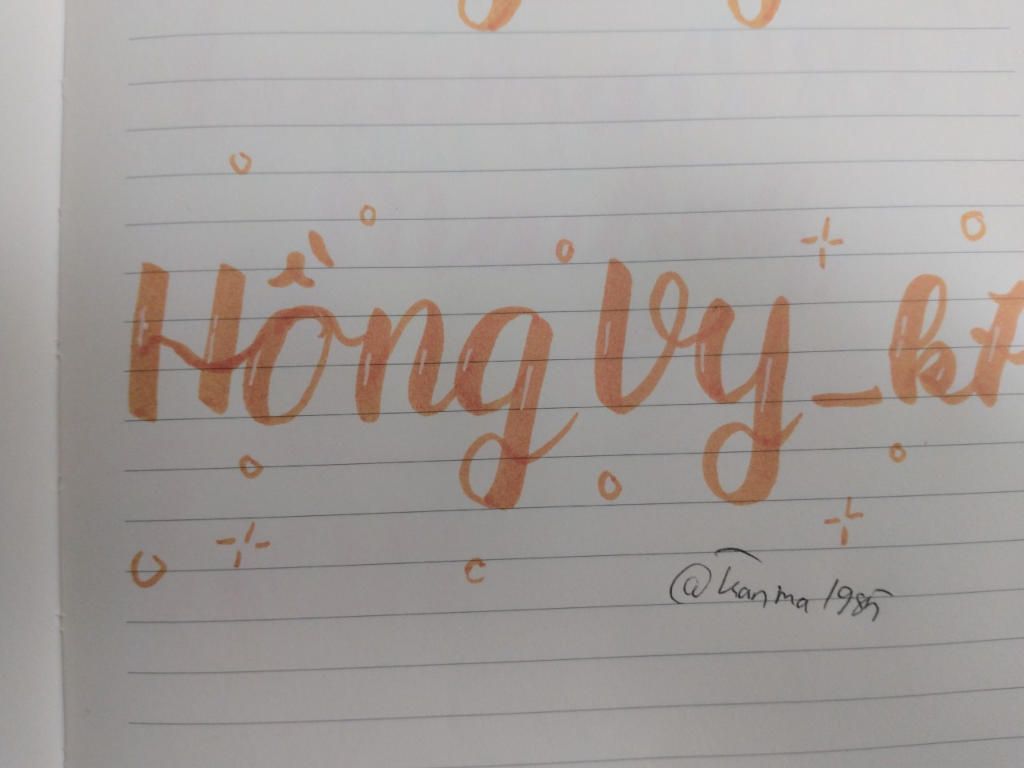 HồngVy_kt
@kanma1985